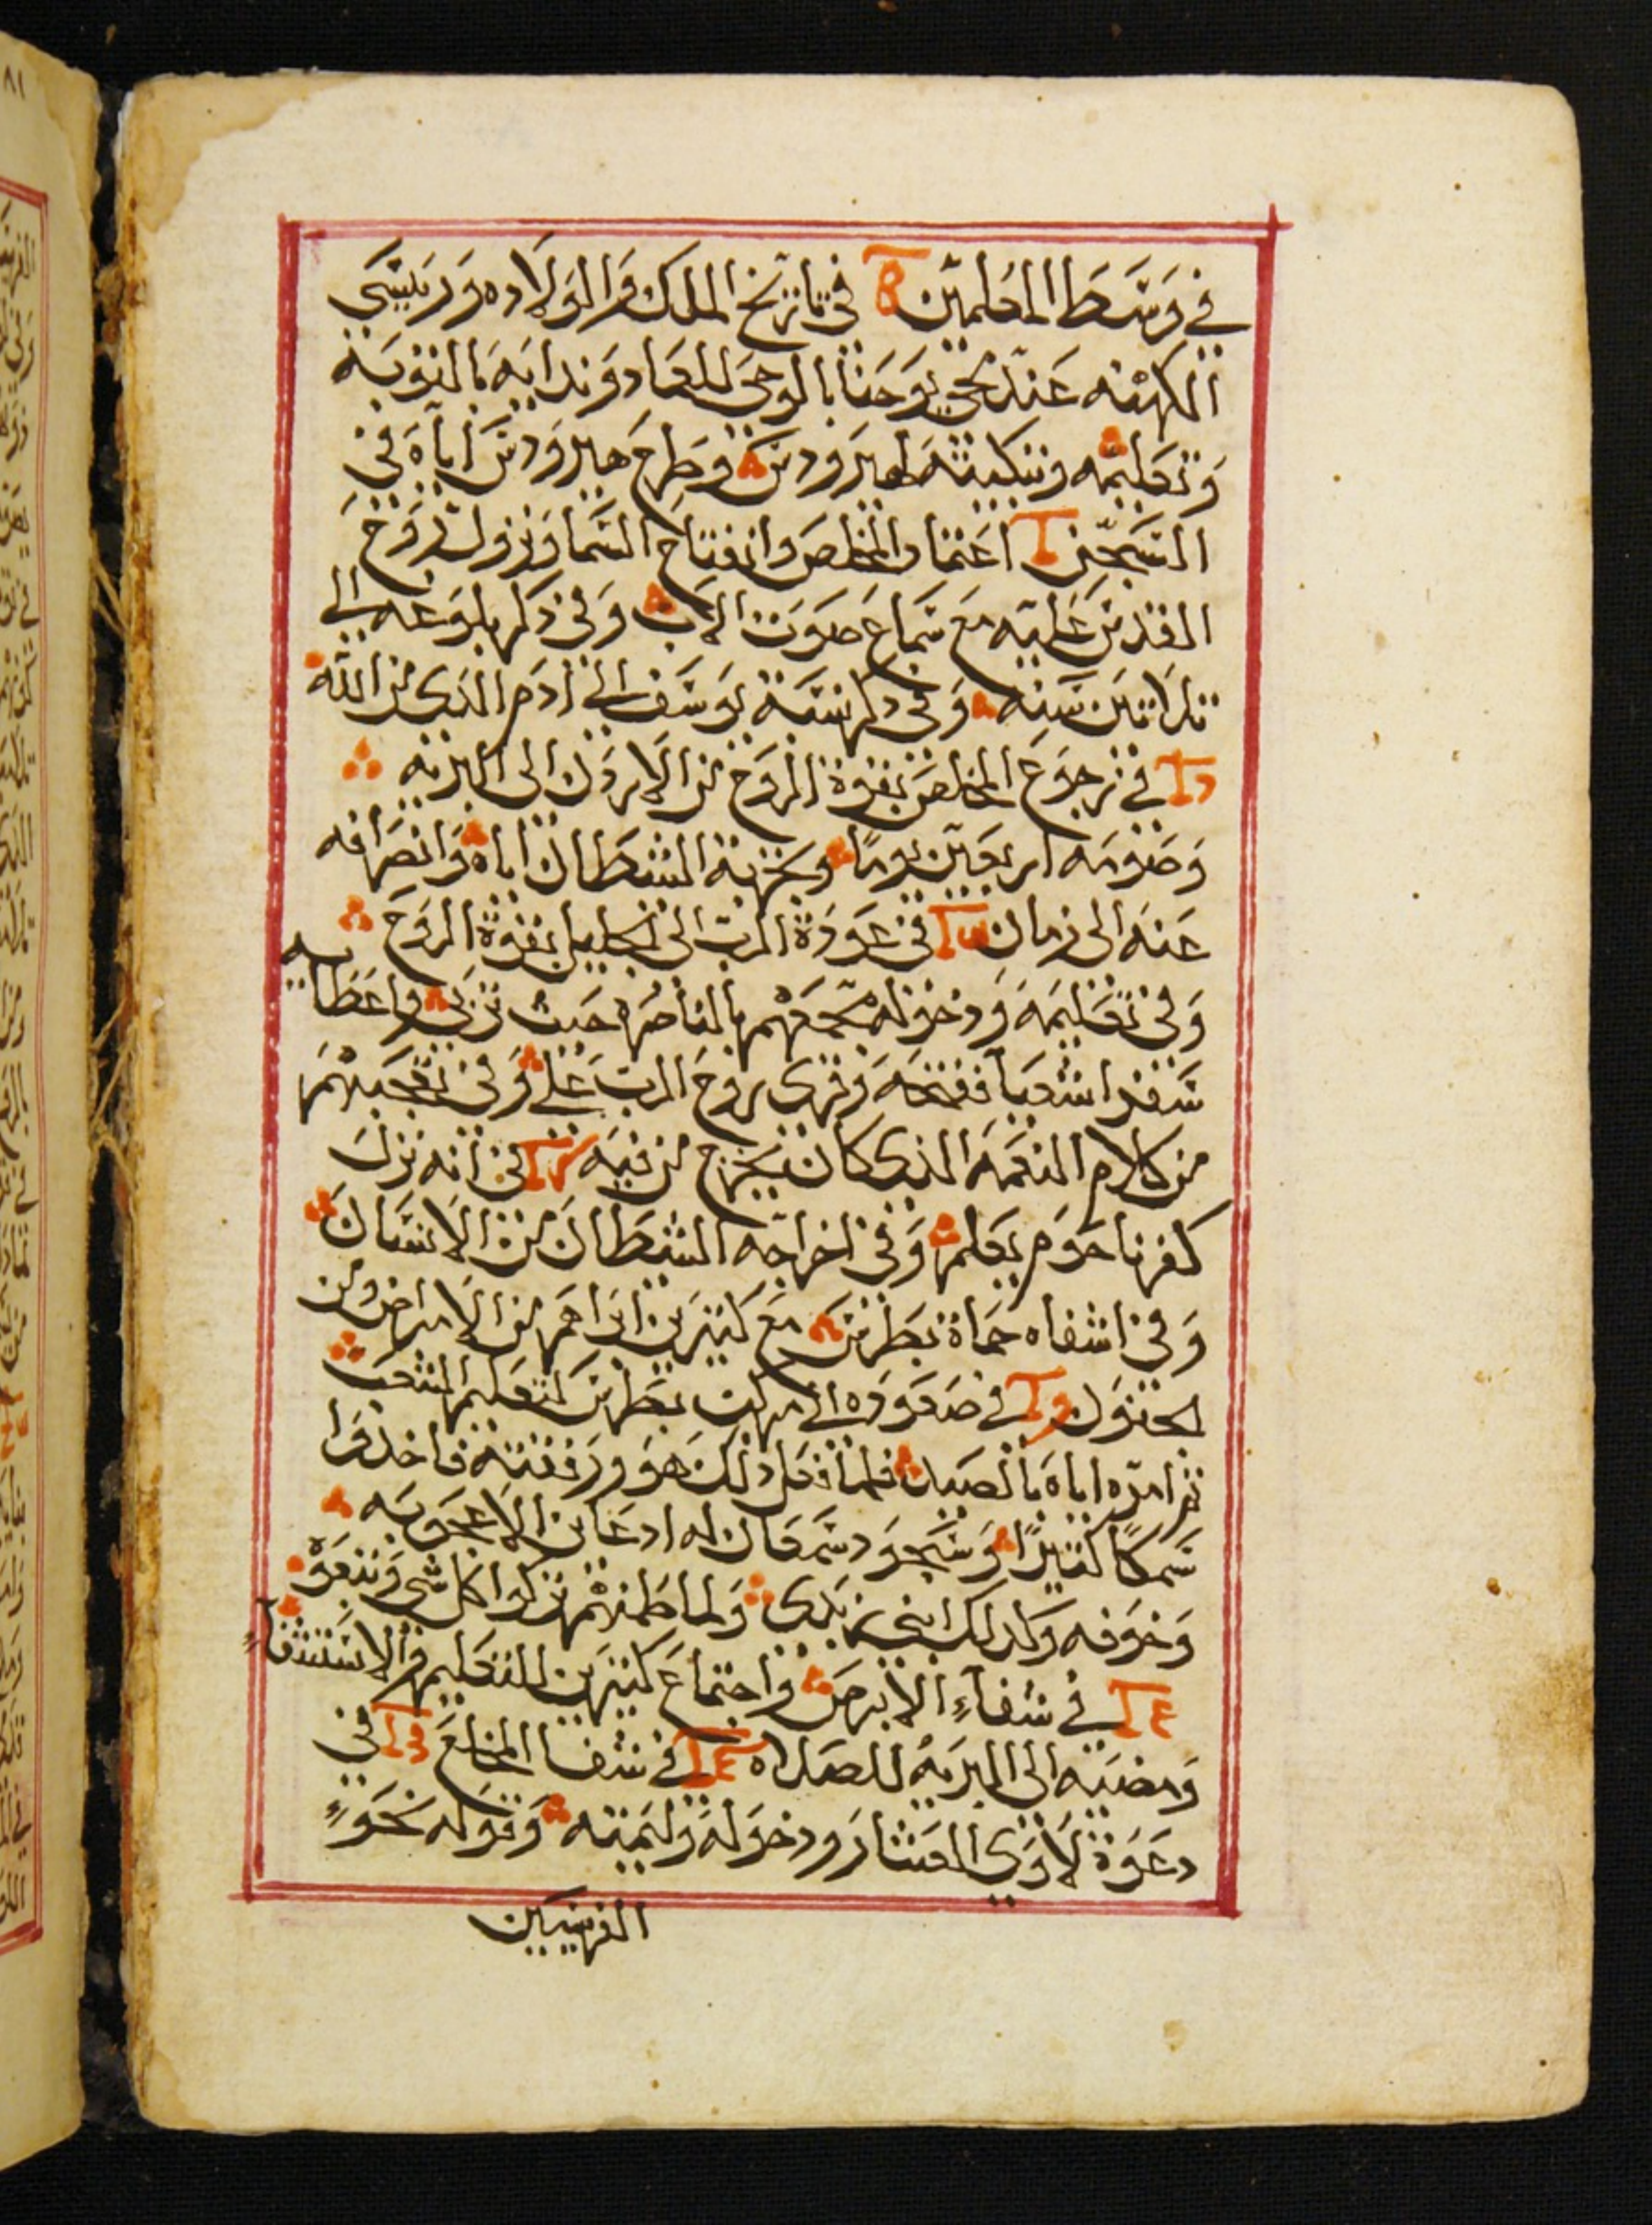 في وسط المعلمين في تاريخ الملك والولاده وريىسى
الكهنه عند مجي يوحنا بالوحي للعماد وندايه بالتوبه
وتعليمه وتبكيته لهيرودس وطرح هيرودس اياه في
السجن اعتماد المخلص وانفتاح السما ونزول روح
القدس عليه مع سماع صوت الاب وفي ذكر بلوغه الى
ثلاثين سنه وفي ذكر نسبة يوسف الى ادم الذي من الله
في رجوع المخلص بقوة الروح من الاردن الى البريه
وصومه اربعين يوما وتجربة الشيطان اياه وانصرافه
عنه الى زمان في عودة الرب الى الجليل بقوة الروح
وفي تعليمه ودخوله مجمعهم بالناصره حيث تربي واعطايه
سفر اشعيا ففتحه وقرى روح الرب علي وفي تعجبهم
من كلام النعمه الذي كان يخرج من فيه في انه نزل
كفرناحوم يعلم وفي اخراجه الشيطان من الانسان
وفي اشفاه حماة بطرس مع كثيرين ابراهم من الامراض ومن
الجنون في صعوده الى مركب بطرس لتعليم الشعب
ثم امره اياه بالصيد فلما فعل ذلك هو ورفقته فاخذوا
سمكا كثيرا وسجود سمعان له اذ عاين الاعجوبه
وخوفه وكذلك ابني زبدى ولما طمنهم تركوا كل شي وتبعوه
في شفاء الابرص واجتماع كثيرين للتعليم والاستشفاء
ومضيه الى البريه للصلاه في شفا المخلع في
دعوة لاوي العشار ودخوله وليمته وقوله نحو
الفريسيين